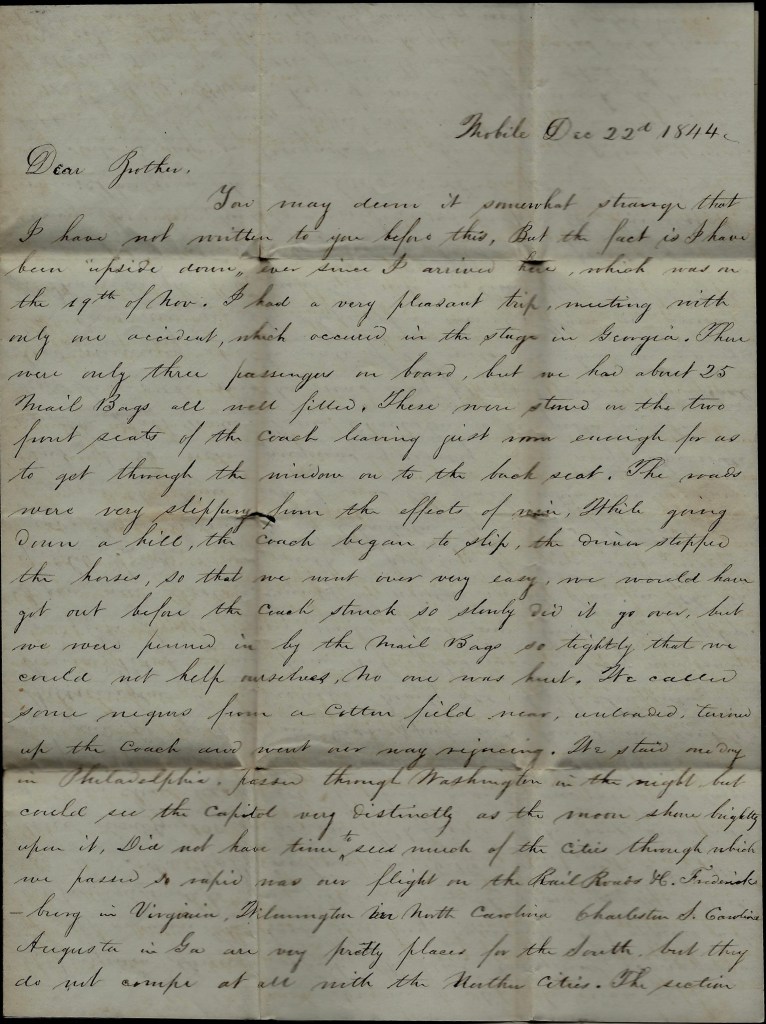 Mobile Dec 22d 1844.
Dear Brother.
You may deem it somewhat strange that
I have not written to you before this. But the fact is I have
been "upside down" ever since I arrived here, which was on
the 19th of Nov. I had a very pleasant trip, meeting with
only one accident, which occured in the stage in Georgia. There
were only three passengers on board, but we had about 25
Mail Bags all well filled. These were stowed on the two
front seats of the coach leaving just room enough for us
to get through the window on to the back seat. The roads
were very slippery from the effects of rain. While going
down a hill, the coach began to slip, the driver stopped
the horses, so that we went over very easy, we would have
got out before the coach struck so slowly did it go over, but
we were penned in by the Mail Bags so tightly that we
could not help ourselves. No one was hurt. We called
some negros from a Cotton field near, unloaded, turned
up the Coach and went our way rejoicing. We staid one day
in Philadelphia. passed through Washington in the night but
could see the Capitol very distinctly as the moon shone brightly
upon it. Did not have time to see much of the cities through which
we passed so rapid was our flight on the Rail Roads &c. Fredericks
-burg in Virginia, Wilmington in North Carolina Charleston S. Carolina
Augusta in Ga are very pretty places for the South, but they
do not compe at all with the Northern Cities. The section